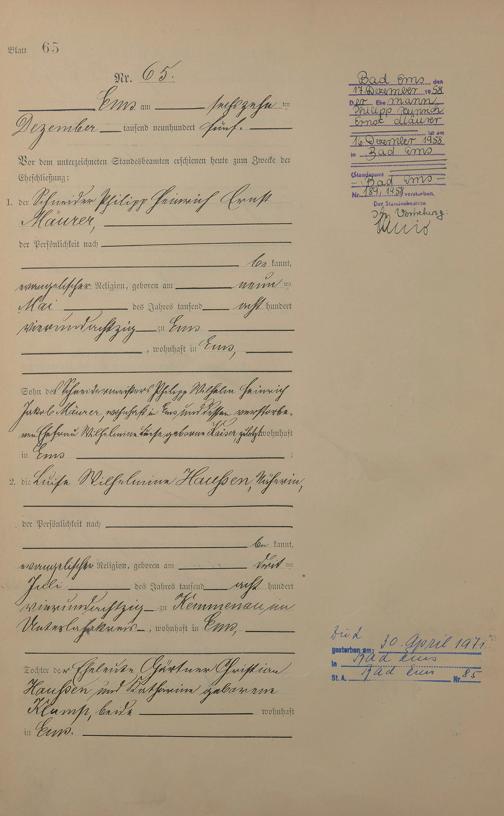 Blatt 65
Nr. 65.
Ems am sechszehn ten
Dezember tausend neunhundert fünf.
Vor dem unterzeichneten Standesbeamten erschienen heute zum Zwecke der
Eheschließung:
1. der Schneider Philipp Heinrich Ernst
Maurer,
der Persönlichkeit nach
be kannt,
evangelischer Religion, geboren am neun ten
Mai des Jahres tausend acht hundert
vierundachtzig zu Ems
, wohnhaft in Ems,
Sohn des Schneidermeisters Philipp Wilhelm Heinrich
Jakob Maurer, wohnhaft in Ems und dessen verstorbe-
nen Ehefrau Wilhelmine Luise geborene Kaiser, zuletzt wohnhaft
in Ems ;
2. die Luise Wilhelmine Haußen, Näherin,
der Persönlichkeit nach
be kannt,
evangelischer Religion, geboren am drit ten
Juli des Jahres tausend acht hundert
vierundachtzig zu Kemmenau im
Unterlahnkreis , wohnhaft in Ems,
Tochter der Eheleute Gärtner Christian
Haußen und Katharine geborene
Klamp, beide wohnhaft
in Ems.
Bad Ems den
17. Dezember 1958
Der Ehemann
Philipp Heinrich
Ernst Maurer
ist am
16. Dezember 1958
in Bad Ems
(Standesamt
Bad Ems
Nr. 189/1958 verstorben.
Der Standesbeamte
In Vertretung:
gestorben am: 30. April 1971
in Bad Ems
St. A. Bad Ems Nr. 85